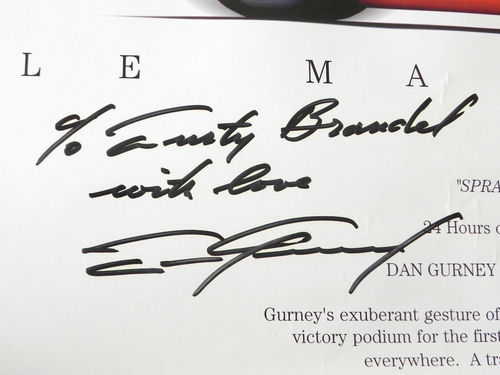 L E M A
To Trusty Brandel
with love
"SPRA
24 Hours o
DAN GURNEY
Gurney's exuberant gesture of
victory podium for the first
everywhere. A tra